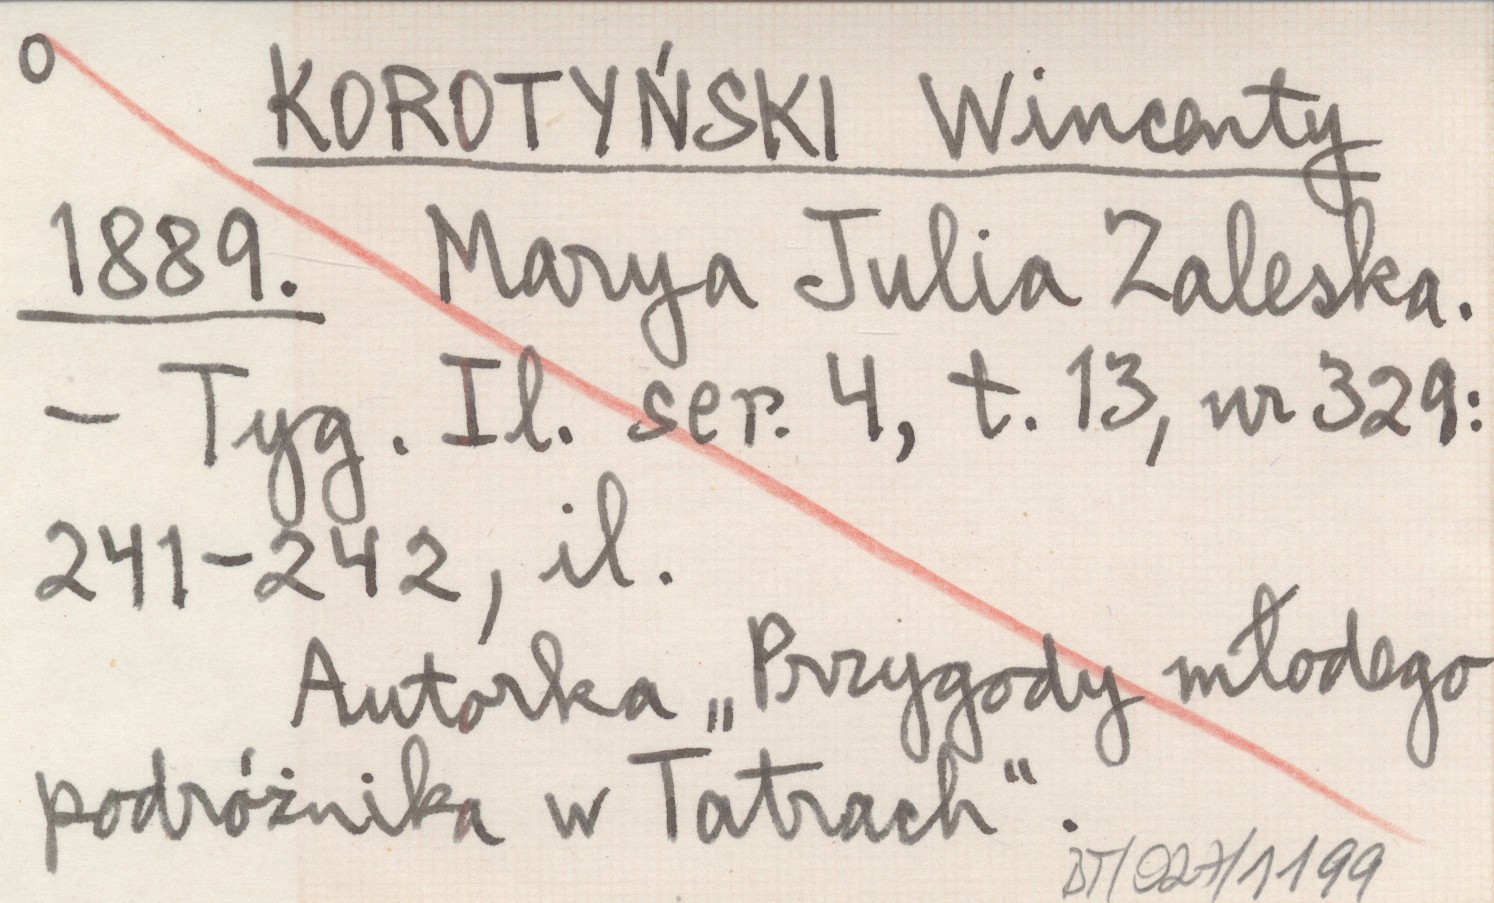 O
KOROTYŃSKI Wincenty
1889. Marya Julia Zaleska.
– Tyg. Il. ser. 4, t. 13, nr 329:
241–242, il.
Autorka „Przygody młodego
podróżnika w Tatrach".
BT/027/1199